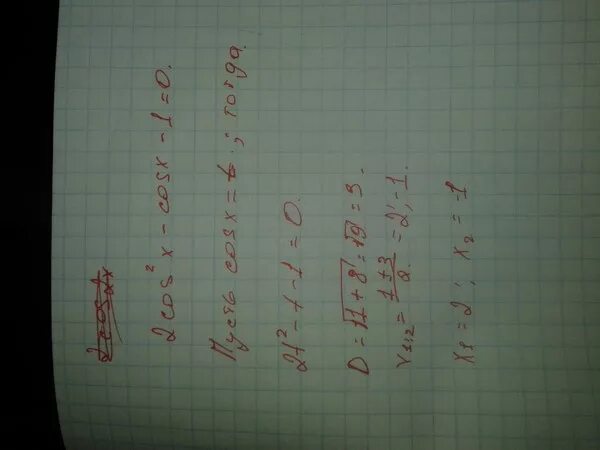 2cos2x
2cos²x - cosx - 1 = 0.
Пусть cosx = t ; тогда.
2t² - t - 1 = 0.
D = √1+8 = √9 = 3.
x₁,₂ = (1±3)/2 = 2; -1.
x₁ = 2; x₂ = -1